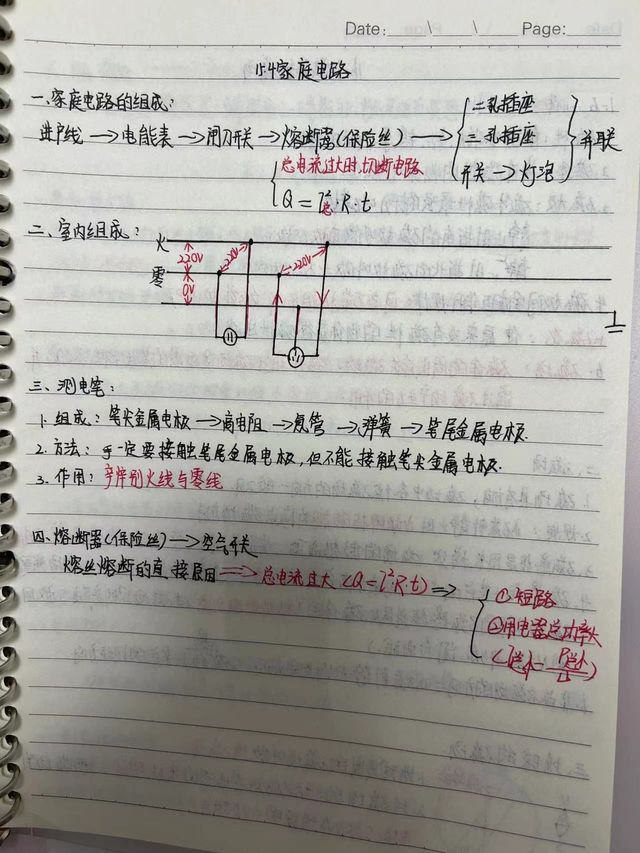 Date: \ \ Page:
15.4家庭电路
一.家庭电路的组成:
进户线→电能表→闸刀开关→熔断器(保险丝)→{二孔插座 三孔插座 开关→灯泡}并联
总电流过大时,切断电路
Q=I总²·R·t
二、室内组成:
火
220V 220V 220V
零
0V
三、测电笔:
1. 组成:笔尖金属电极→高电阻→氖管→弹簧→笔尾金属电极.
2. 方法:手一定要接触笔尾金属电极,但不能接触笔尖金属电极.
3. 作用:辨别火线与零线
四.熔断器(保险丝)→空气开关
熔丝熔断的直接原因⇒总电流过大(Q=I²R·t)⇒
①短路
②用电器总功率大
(I总大=P总大/U)